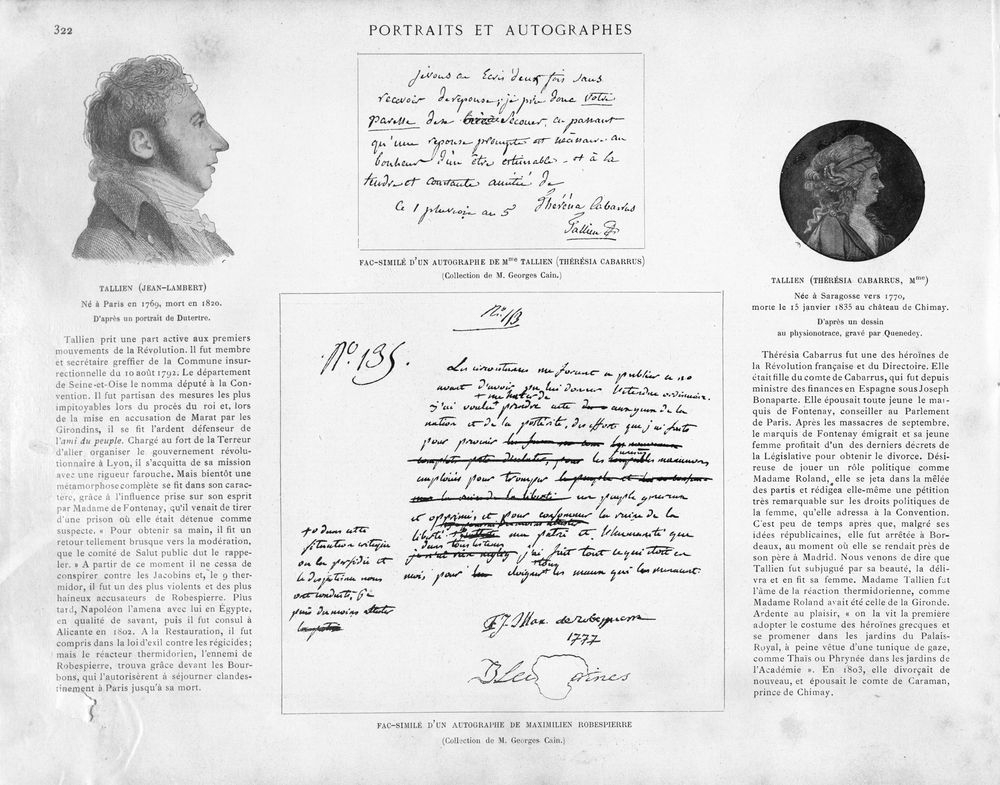 322
PORTRAITS ET AUTOGRAPHES
TALLIEN (JEAN-LAMBERT)
Né à Paris en 1769, mort en 1820.
D'après un portrait de Dutertre.
Tallien prit une part active aux premiers
mouvements de la Révolution. Il fut membre
et secrétaire greffier de la Commune insur-
rectionnelle du 10 août 1792. Le département
de Seine-et-Oise le nomma député à la Con-
vention. Il fut partisan des mesures les plus
impitoyables lors du procès du roi et, lors
de la mise en accusation de Marat par les
Girondins, il se fit l'ardent défenseur de
l'ami du peuple. Chargé au fort de la Terreur
d'aller organiser le gouvernement révolu-
tionnaire à Lyon, il s'acquitta de sa mission
avec une rigueur farouche. Mais bientôt une
métamorphose complète se fit dans son carac-
tère, grâce à l'influence prise sur son esprit
par Madame de Fontenay, qu'il venait de tirer
d'une prison où elle était détenue comme
suspecte. « Pour obtenir sa main, il fit un
retour tellement brusque vers la modération,
que le comité de Salut public dut le rappe-
ler. » A partir de ce moment il ne cessa de
conspirer contre les Jacobins et, le 9 ther-
midor, il fut un des plus violents et des plus
haineux accusateurs de Robespierre. Plus
tard, Napoléon l'amena avec lui en Égypte,
en qualité de savant, puis il fut consul à
Alicante en 1802. A la Restauration, il fut
compris dans la loi d'exil contre les régicides;
mais le réacteur thermidorien, l'ennemi de
Robespierre, trouva grâce devant les Bour-
bons, qui l'autorisèrent à séjourner clandes-
tinement à Paris jusqu'à sa mort.
je vous ai Ecris deux fois sans
recevoir de reponse; je prie donc votre
paresse de se Secouer, en passant
qu'une reponse prompte est nécessaire au
bonheur d'un être estimable et à la
tendre et constante amitié de
Ce 1 pluviose an 5 Thérésia Cabarrus
Tallien
FAC-SIMILÉ D'UN AUTOGRAPHE DE Mme TALLIEN (THÉRÉSIA CABARRUS)
(Collection de M. Georges Cain.)
No. 135.
Les circonstances me forcent a publier
avant d'avoir pu lui donner
j'ai voulu prendre acte aux yeux de la
nation et de la posterité, des efforts que j'ai faits
pour prevenir
les manoeuvres
employées pour tromper
un peuple genereux
et opprimé, et pour consommer la ruine de la
liberté
j'ai fait tout ce qui etoit en
moi pour eloigner les maux qui les menacent
dans cette
situation critique
ou la perfidie et
le despotisme nous
ont conduits,
puis du moins attester
Max. de robespierre
1777
FAC-SIMILÉ D'UN AUTOGRAPHE DE MAXIMILIEN ROBESPIERRE
(Collection de M. Georges Cain.)
TALLIEN (THÉRÉSIA CABARRUS, Mme)
Née à Saragosse vers 1770,
morte le 15 janvier 1835 au château de Chimay.
D'après un dessin
au physionotrace, gravé par Quenedey.
Thérésia Cabarrus fut une des héroïnes de
la Révolution française et du Directoire. Elle
était fille du comte de Cabarrus, qui fut depuis
ministre des finances en Espagne sous Joseph
Bonaparte. Elle épousait toute jeune le mar-
quis de Fontenay, conseiller au Parlement
de Paris. Après les massacres de septembre,
le marquis de Fontenay émigrait et sa jeune
femme profitait d'un des derniers décrets de
la Législative pour obtenir le divorce. Dési-
reuse de jouer un rôle politique comme
Madame Roland, elle se jeta dans la mêlée
des partis et rédigea elle-même une pétition
très remarquable sur les droits politiques de
la femme, qu'elle adressa à la Convention.
C'est peu de temps après que, malgré ses
idées républicaines, elle fut arrêtée à Bor-
deaux, au moment où elle se rendait près de
son père à Madrid. Nous venons de dire que
Tallien fut subjugué par sa beauté, la déli-
vra et en fit sa femme. Madame Tallien fut
l'âme de la réaction thermidorienne, comme
Madame Roland avait été celle de la Gironde.
Ardente au plaisir, « on la vit la première
adopter le costume des héroïnes grecques et
se promener dans les jardins du Palais-
Royal, à peine vêtue d'une tunique de gaze,
comme Thaïs ou Phrynée dans les jardins de
l'Académie ». En 1803, elle divorçait de
nouveau, et épousait le comte de Caraman,
prince de Chimay.